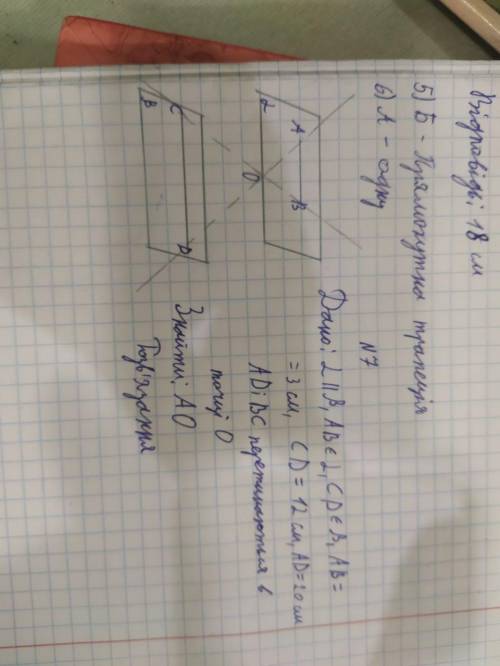 Відповідь: 18 см
5) Б - Прямокутна трапеція
6) А - одну
N7
Дано: α || β, AB ∈ α, CD ∈ β, AB =
= 3 см, CD = 12 см, AD = 20 см
AD і BC перетинаються в
точці O
Знайти: AO
Розв'язання
A
B
α
O
C
D
β